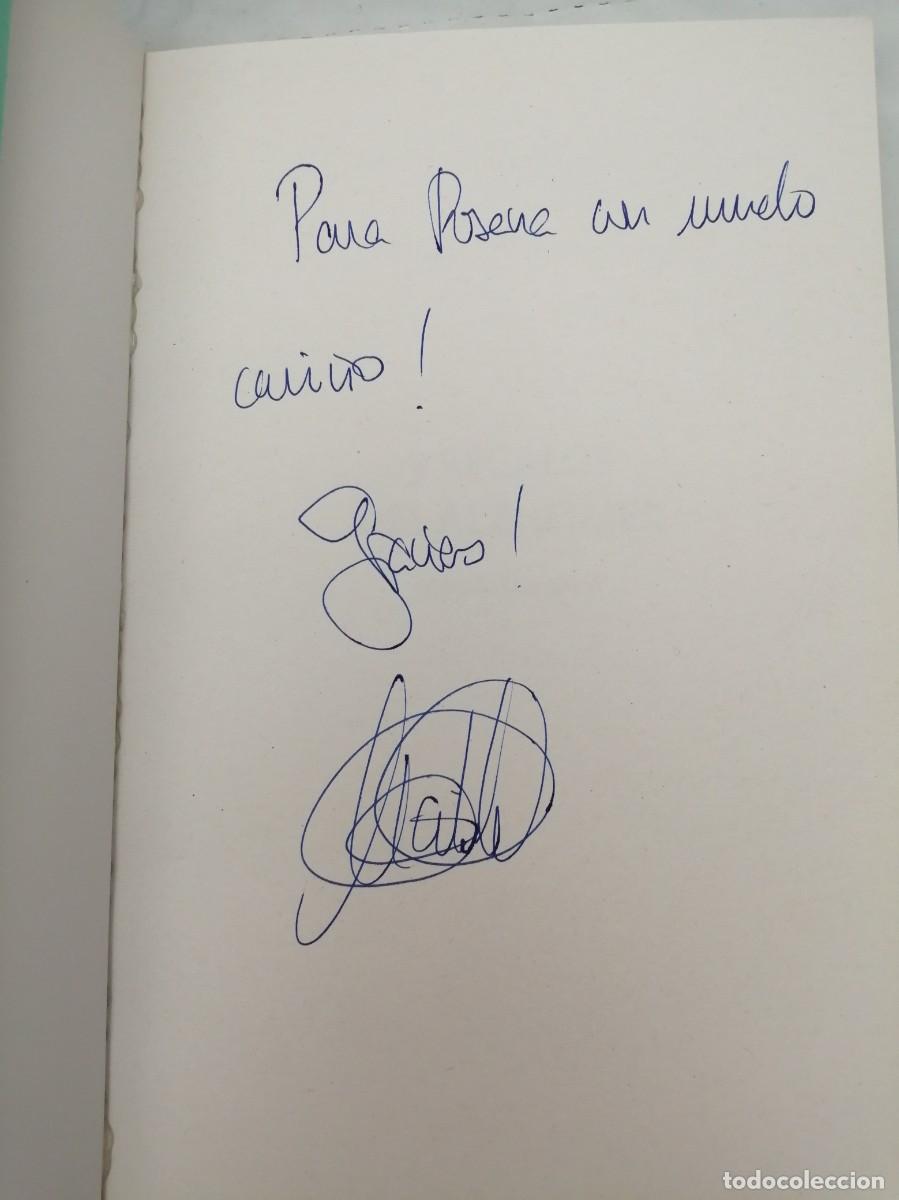 Para Rosana con mucho
cariño!
Gracias!
todocoleccion